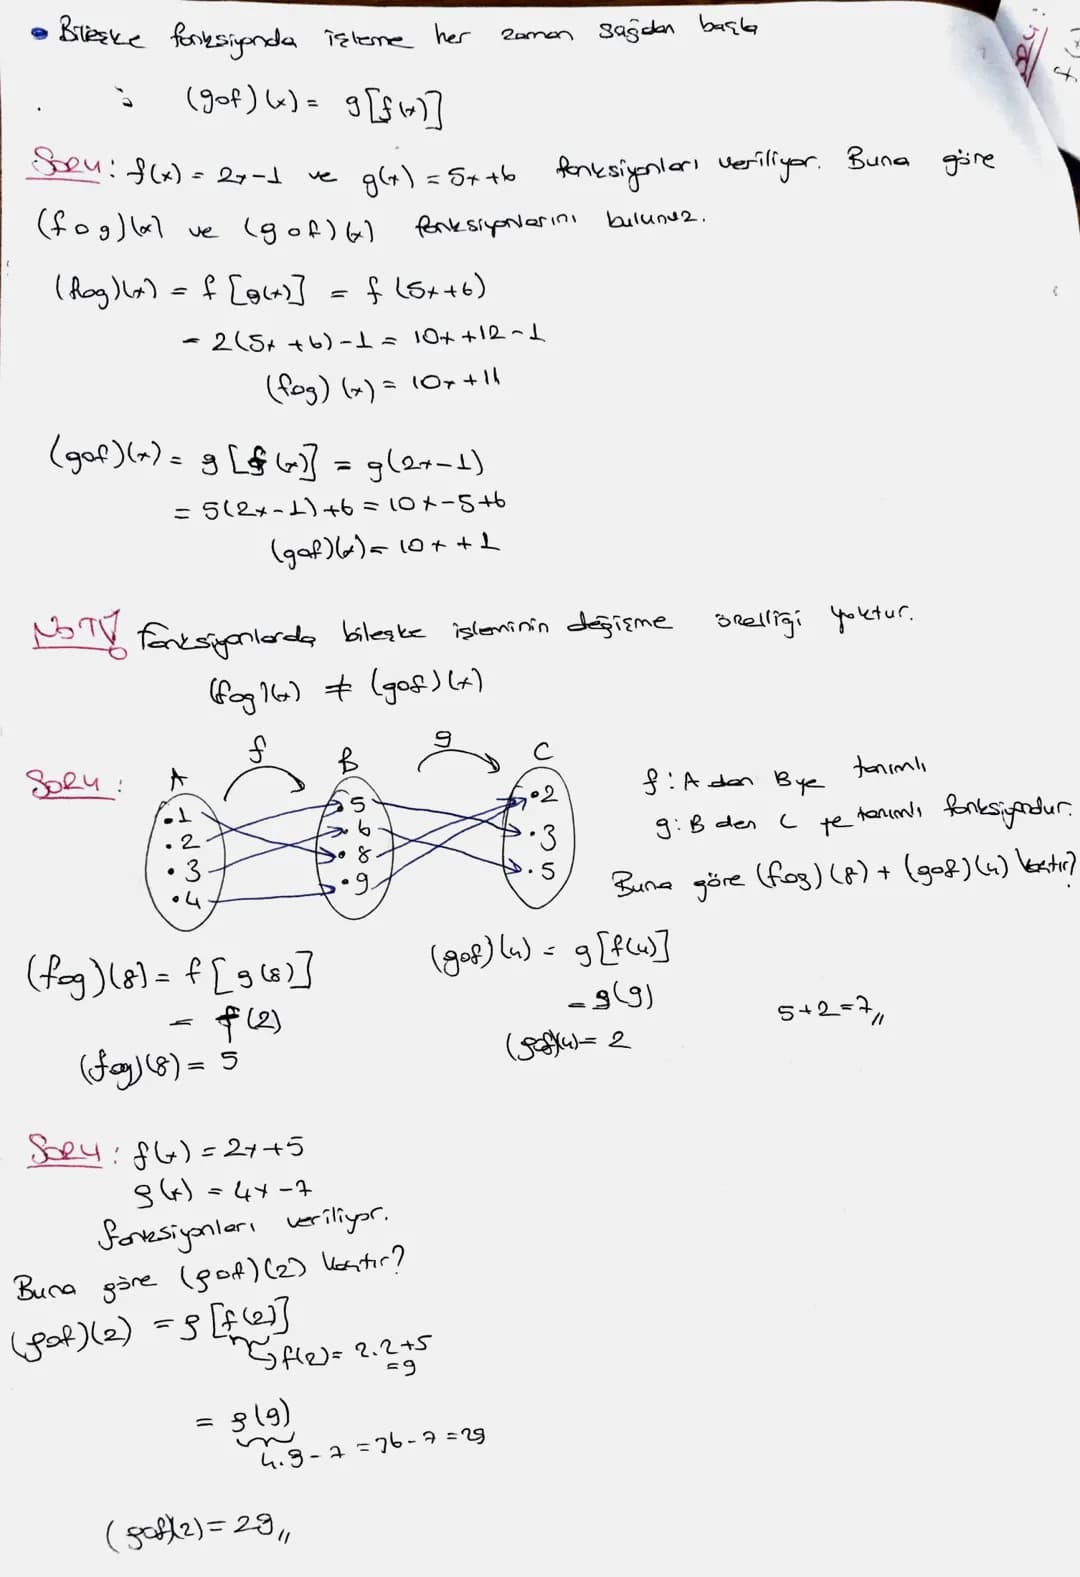 • Bileşke fonksiyonda işleme her zaman sağdan başla
(gof)(x) = g[f(x)]
Soru: f(x) = 2x-1 ve g(x) = 5x+6 fonksiyonları veriliyor. Buna göre
(fog)(x) ve (gof)(x) fonksiyonlarını bulunuz.
(fog)(x) = f [g(x)] = f (5x+6)
= 2(5x+6)-1 = 10x+12-1
(fog)(x) = 10x+11
(gof)(x) = g [f(x)] = g(2x-1)
= 5(2x-1)+6 = 10x-5+6
(gof)(x) = 10x+1
NOT! Fonksiyonlarda bileşke işleminin değişme özelliği yoktur.
(fog)(x) ≠ (gof)(x)
Soru:
f g
A B C
.1 .2 .3 .4
5 6 8 9
.2 .3 .5
f: A dan B ye tanımlı
g: B den C ye tanımlı fonksiyondur.
Buna göre (fog)(8) + (gof)(4) kaçtır?
(fog)(8) = f [g(8)]
= f(2)
(fog)(8) = 5
(gof)(4) = g[f(4)]
= g(9)
(gof)(4) = 2
5+2=7,,
Soru: f(x) = 2x+5
g(x) = 4x-7
fonksiyonları veriliyor.
Buna göre (gof)(2) kaçtır?
(gof)(2) = g[f(2)]
f(2) = 2.2+5
=9
= g(9)
4.9-7 = 36-7 = 29
(gof)(2) = 29,,